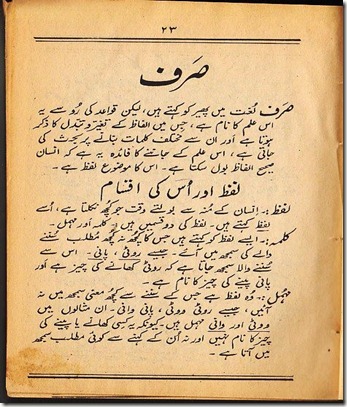 ۲۳
صَرف
صَرف لُغت میں پھیر کو کہتے ہیں، لیکن قواعد کی رُو سے یہ
اس علم کا نام ہے، جس میں الفاظ کے تغیّر و تبدّل کا ذکر
ہوتا ہے اور ان سے مختلف کلمات بنانے پر بحث کی
جاتی ہے، اس علم کے جاننے کا فائدہ یہ ہے کہ انسان
صحیح الفاظ بول سکتا ہے۔ اس کا موضوع لفظ ہے۔
لفظ اور اُس کی اقسام
لفظ :۔ انسان کے مُنہ سے بولتے وقت جو کچھ نکلتا ہے، اُسے
لفظ کہتے ہیں۔ لفظ کی دو قسمیں ہیں۔ کلمہ اور مہمل۔
کلمہ :۔ ایسے لفظ کو کہتے ہیں جس کا کچھ نہ کچھ مطلب سُننے
والے کی سمجھ میں آئے۔ جیسے روٹی، پانی۔ اس سے
سُننے والا سمجھ جاتا ہے کہ روٹی کھانے کی چیز ہے اور
پانی پینے کی چیز کا نام ہے۔
مہمل :۔ وہ لفظ ہے جس کے سُننے سے کچھ معنی سمجھ میں نہ
آئیں، جیسے روٹی ووٹی، پانی وانی۔ ان مثالوں میں
ووٹی اور وانی مہمل ہیں۔ کیونکہ یہ کسی کھانے یا پینے کی
چیز کا نام نہیں اور نہ اُن کے کہنے سے کوئی مطلب سمجھ
میں آتا ہے۔